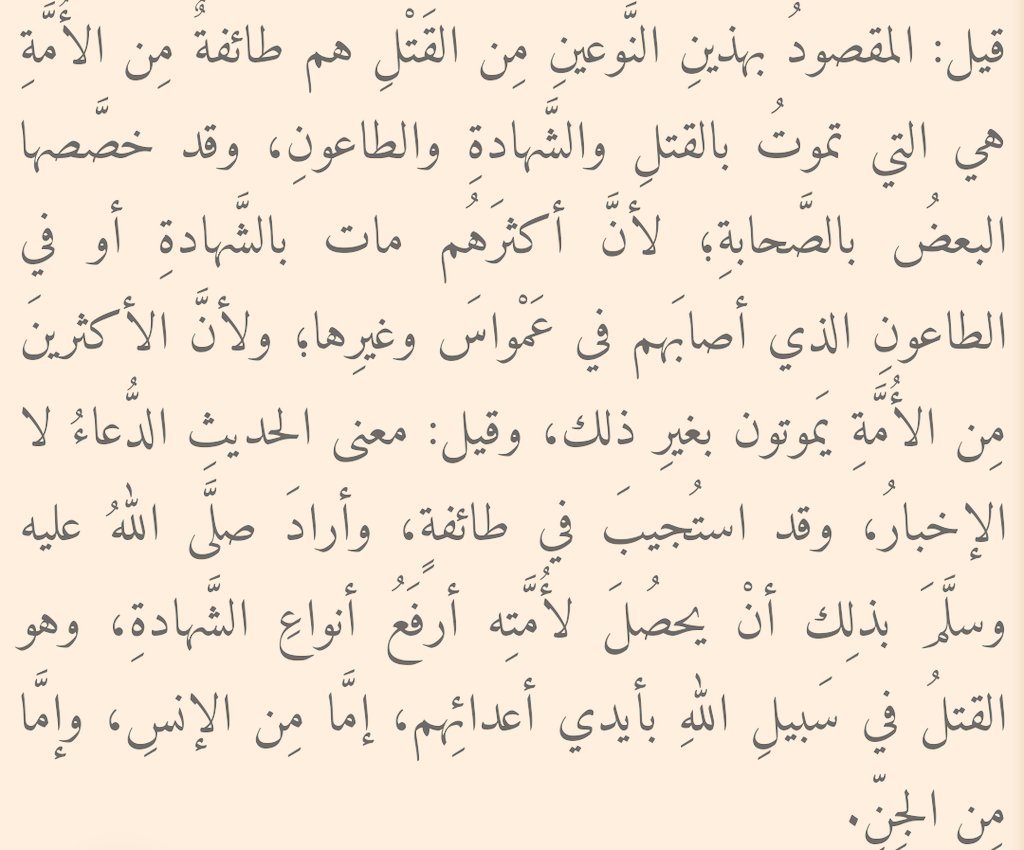 قيل: المقصودُ بهذينِ النَّوعينِ مِن القَتْلِ هم طائفةٌ مِن الأُمَّةِ
هي التي تموتُ بالقتلِ والشَّهادةِ والطاعونِ، وقد خصَّصها
البعضُ بالصَّحابةِ؛ لأنَّ أكثرَهُم مات بالشَّهادةِ أو في
الطاعونِ الذي أصابَهم في عَمْواسَ وغيرِها؛ ولأنَّ الأكثرينَ
مِن الأُمَّةِ يَموتون بغيرِ ذلك، وقيل: معنى الحديثِ الدُّعاءُ لا
الإخبارُ، وقد استُجيبَ في طائفةٍ، وأرادَ صلَّى اللهُ عليه
وسلَّمَ بذلِك أنْ يحصُلَ لأُمَّتِه أرفَعُ أنواعِ الشَّهادةِ، وهو
القتلُ في سَبيلِ اللهِ بأيدي أعدائِهم، إمَّا مِن الإنسِ، وإمَّا
مِن الجِنِّ.